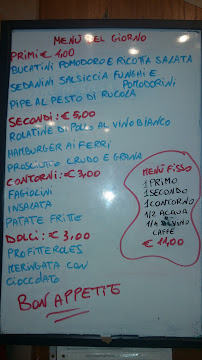 MENÙ DEL GIORNO
PRIMI € 4,00
BUCATINI POMODORO E RICOTTA SALATA
SEDANINI SALSICCIA FUNGHI E
POMODORINI
PIPE AL PESTO DI RUCOLA
SECONDI: € 5,00
ROLATINE DI POLLO AL VINO BIANCO
HAMBURGER AI FERRI
PROSCIUTTO CRUDO E GRANA
CONTORNI: € 3,00
FAGIOLINI
INSALATA
PATATE FRITTE
DOLCI: € 3,00
PROFITTEROLES
MERINGATA CON
CIOCCOLATO
BON APPETITE
MENÙ FISSO
1 PRIMO
1 SECONDO
1 CONTORNO
1/2 ACQUA
1/4 VINO
CAFFÈ
€ 11,00